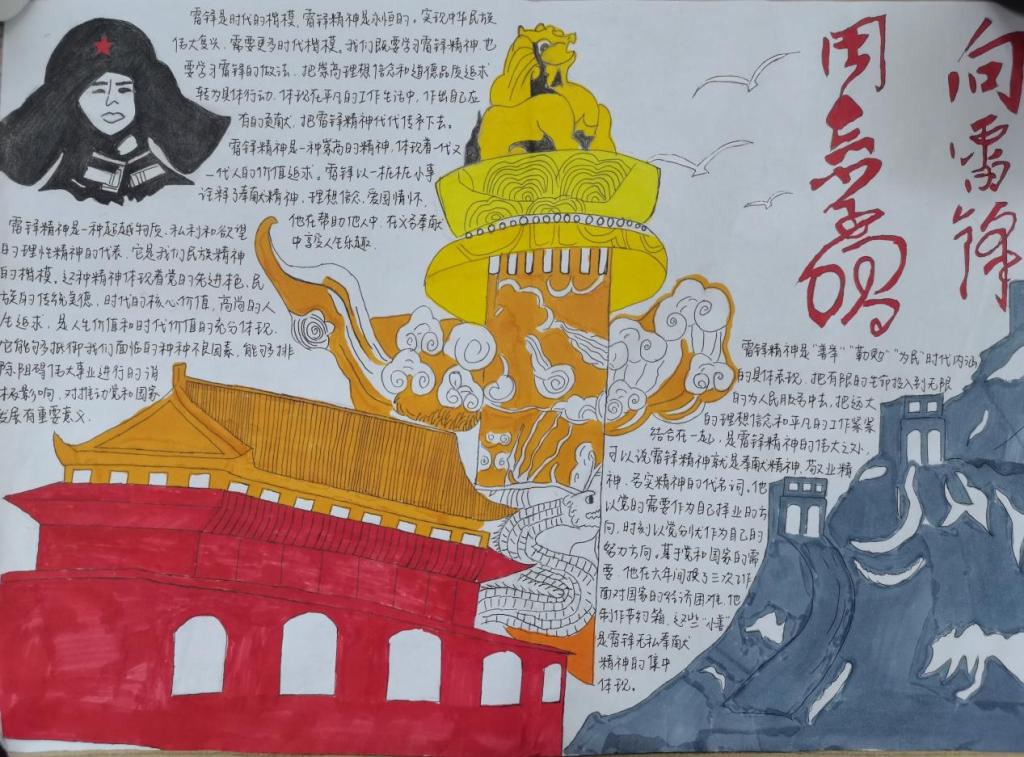 向雷锋
同志学习
雷锋是时代的楷模,雷锋精神是永恒的。实现中华民族
伟大复兴,需要更多时代楷模。我们既要学习雷锋精神,也
要学习雷锋的做法,把崇高理想信念和道德品质追求
转为具体行动,体现在平凡的工作生活中,作出自己应
有的贡献,把雷锋精神代代传承下去。
雷锋精神是一种崇高的精神,体现着一代又
一代人的价值追求。雷锋以一桩桩小事
诠释了奉献精神,理想信念,爱国情怀,
他在帮助他人中,在义务奉献
中享受人生乐趣.
雷锋精神是一种超越物质、私利和欲望
的理性精神的代表,它是我们民族精神
的楷模。这种精神体现着党的先进本色,民
族的传统美德,时代的核心价值,高尚的人
生追求,是人生价值和时代价值的充分体现,
它能够抵御我们面临的种种不良因素,能够排
除阻碍伟大事业进行的消
极影响,对推动党和国家
发展有重要意义.
雷锋精神是“善举”“勤勉”“为民”时代内涵
的具体表现,把有限的生命投入到无限
的为人民服务中去,把远大
的理想信念和平凡的工作紧紧
结合在一起,是雷锋精神的伟大之处,
可以说雷锋精神就是奉献精神、敬业精
神、务实精神的代名词。他
以党的需要作为自己择业的方
向,时刻以党分忧作为自己的
努力方向。基于党和国家的需
要,他在六年间换了三次工作
面对国家的经济困难,他
制作节约箱,这些“小善”
是雷锋无私奉献
精神的集中
体现。